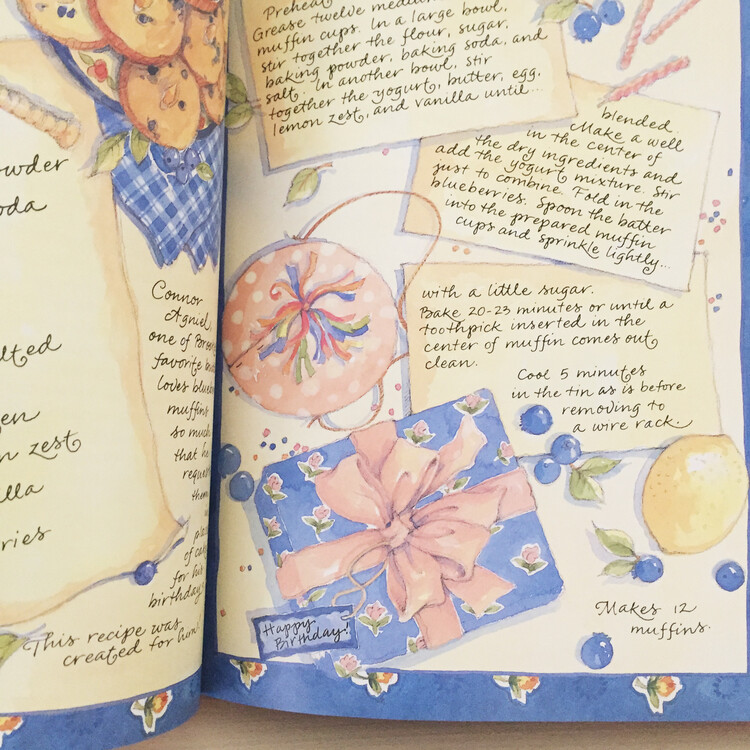 owder
oda
lted
en
n zest
illa
ries
Connor
Agniel,
one of
favorite
loves
muffins
so much
that he
them
of
for his
birthday.
This recipe was
created for him!
Grease twelve
muffin cups. In a large bowl,
stir together the flour, sugar,
baking powder, baking soda, and
salt. In another bowl, stir
together the yogurt, butter, egg,
lemon zest, and vanilla until...
blended.
Make a well
in the center of
the dry ingredients and
add the yogurt mixture. Stir
just to combine. Fold in the
blueberries. Spoon the batter
into the prepared muffin
cups and sprinkle lightly...
with a little sugar.
Bake 20-23 minutes or until a
toothpick inserted in the
center of muffin comes out
clean.
Cool 5 minutes
in the tin as is before
removing to
a wire rack.
Happy
Birthday!
Makes 12
muffins.